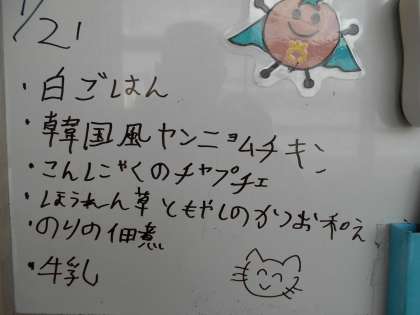 1/21
・白ごはん
・韓国風ヤンニョムチキン
・こんにゃくのチャプチェ
・ほうれん草ともやしのかつお和え
・のりの佃煮
・牛乳